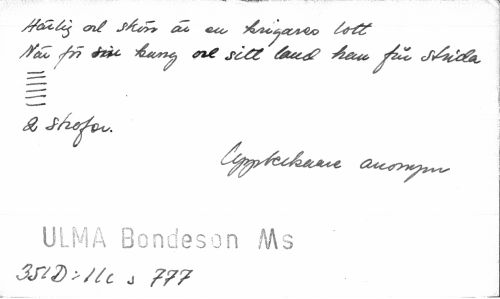 Härlig och skön är en krigares lott
När för sin kung och sitt land han får strida
2 strofer.
Upptecknare anonym
ULMA Bondeson Ms
351D:11c s 777